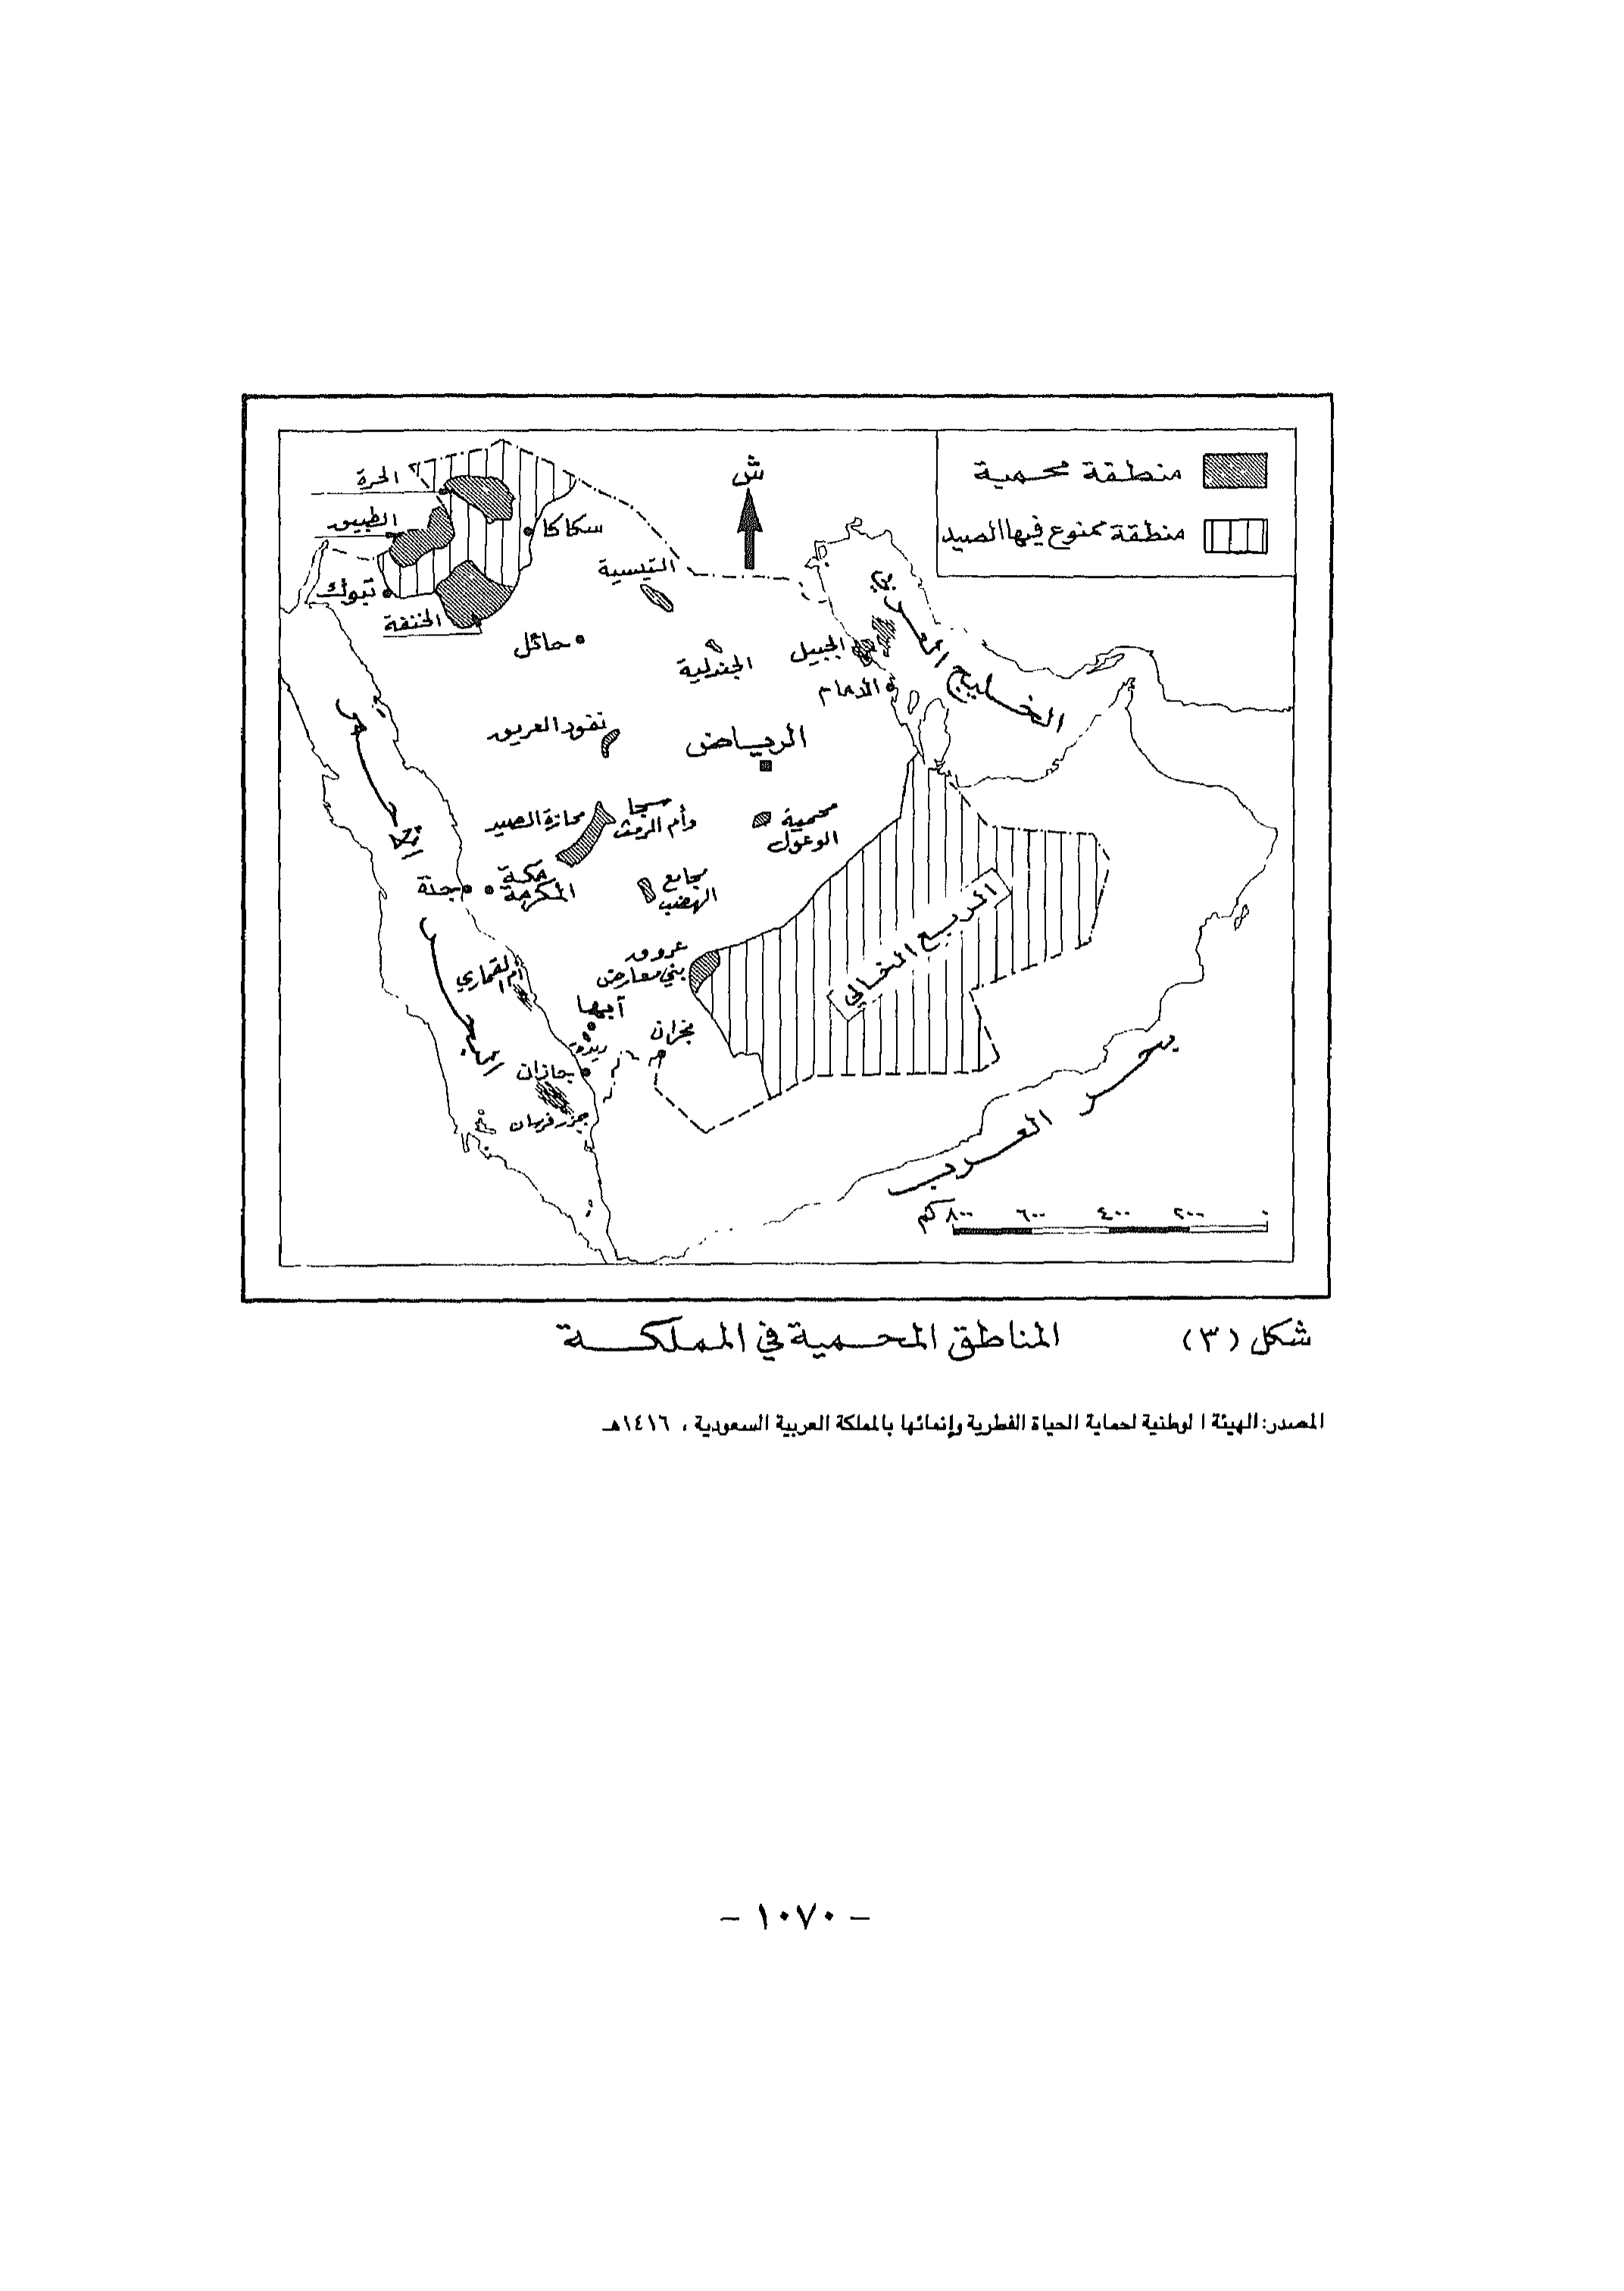 منطقة محمية
منطقة ممنوع فيها الصيد
ش
الحرة
الطبيق
سكاكا
تبوك
الخنفة
التيسية
حائل
الجندلية
الجبيل
الدمام
الخليج العربي
نفود العريق
الرياض
محازة الصيد
سجا
وأم الرمث
محمية
الوعول
جدة
مكة
المكرمة
مجامع
الهضب
الربع الخالي
عروق
بني معارض
أم القماري
أبها
ريدة
نجران
جازان
جزر فرسان
البحر الأحمر
بحر العرب
٠ ٢٠٠ ٤٠٠ ٦٠٠ ٨٠٠ كم
شكل (٣) المناطق المحمية في المملكة
المصدر: الهيئة الوطنية لحماية الحياة الفطرية وإنمائها بالمملكة العربية السعودية ، ١٤١٦هـ
– ١٠٧٠ –